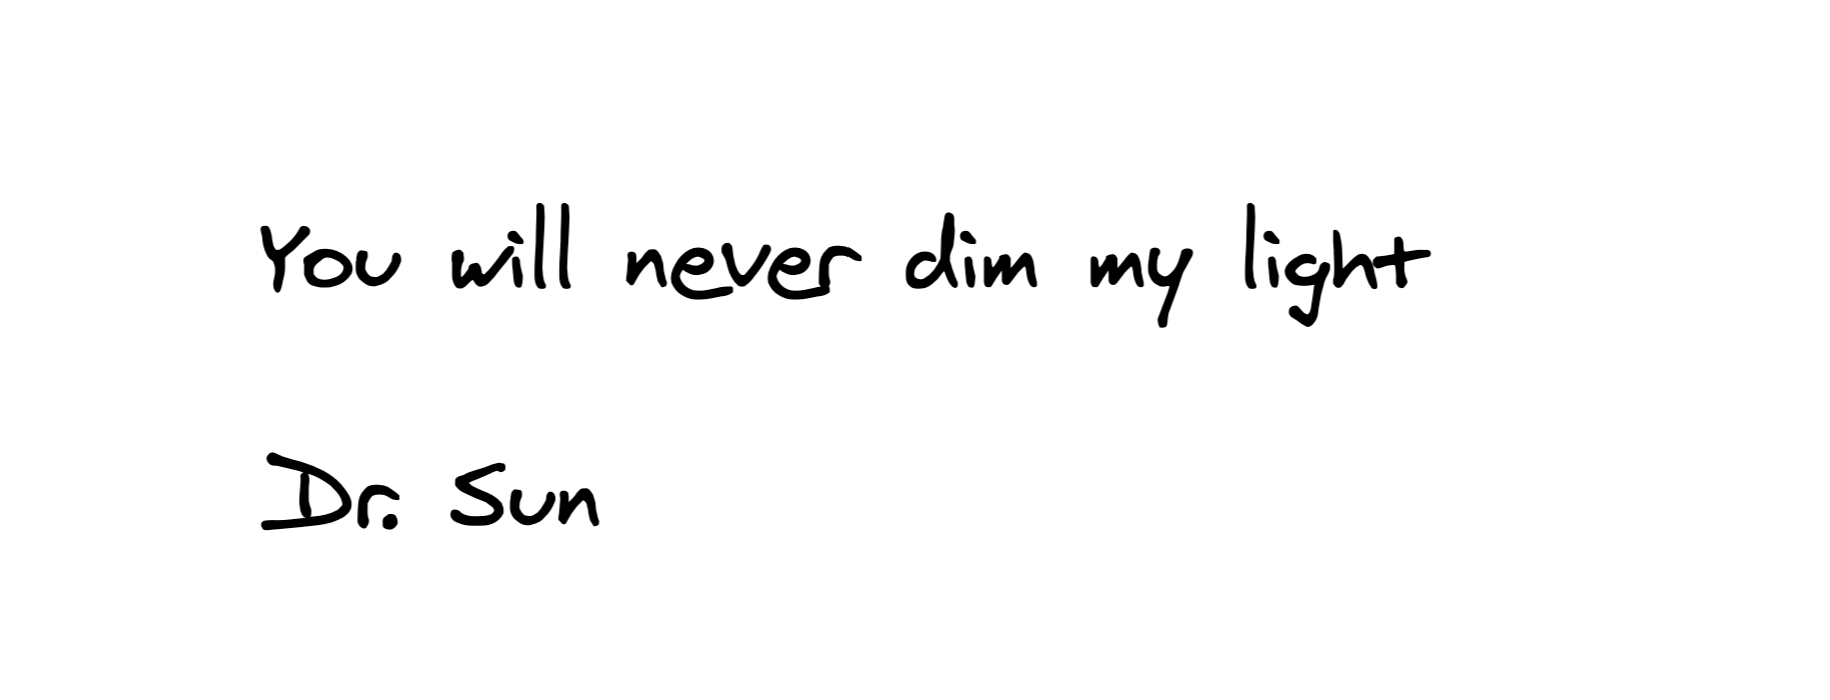 You will never dim my light
Dr. Sun